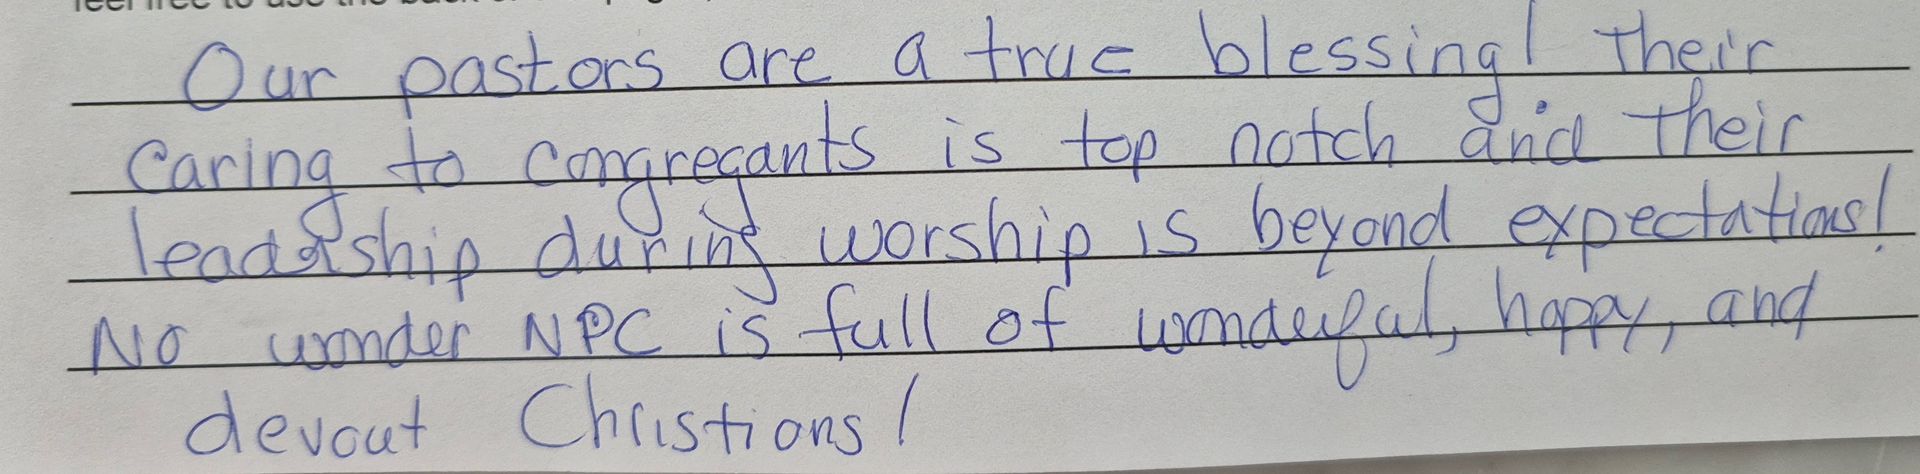 Our pastors are a true blessing! Their
caring to congregants is top notch and their
leadership during worship is beyond expectations!
No wonder NPC is full of wonderful, happy, and
devout Christians!